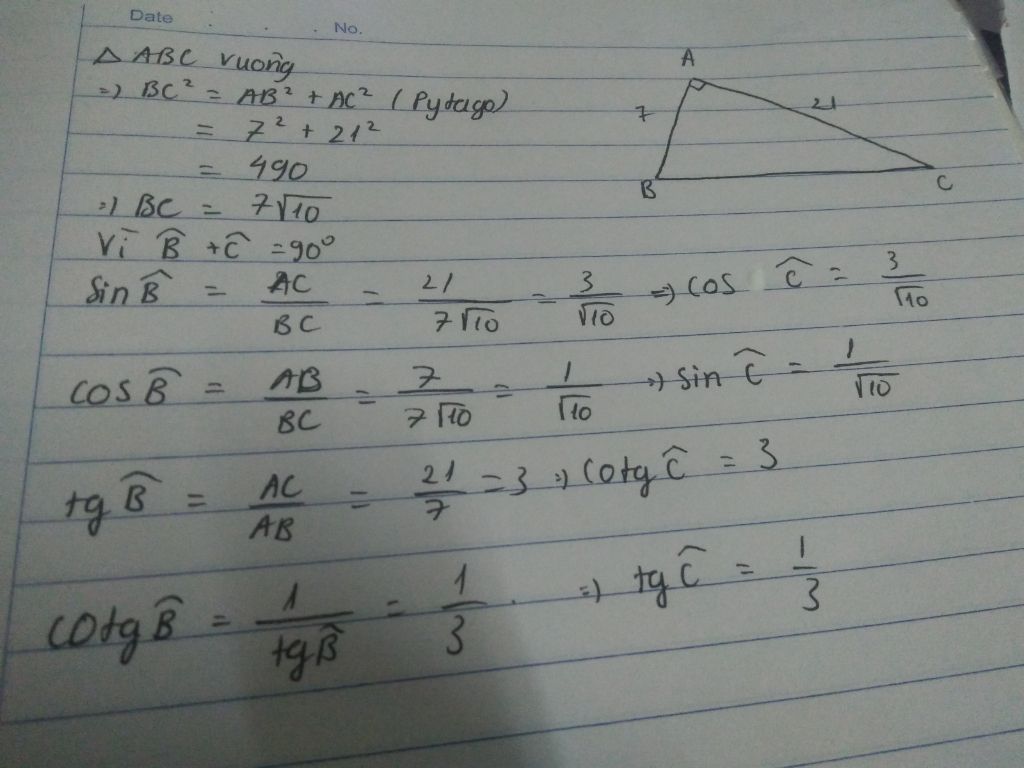 Date . . . No.
△ ABC vuông
=> BC² = AB² + AC² (Pytago)
= 7² + 21²
= 490
=> BC = 7√10
Vì B̂ + Ĉ = 90°
Sin B̂ = AC/BC = 21/7√10 = 3/√10 => cos Ĉ = 3/√10
cos B̂ = AB/BC = 7/7√10 = 1/√10 => sin Ĉ = 1/√10
tg B̂ = AC/AB = 21/7 = 3 => cotg Ĉ = 3
cotg B̂ = 1/tg B̂ = 1/3 . => tg Ĉ = 1/3
A
7
21
B
C